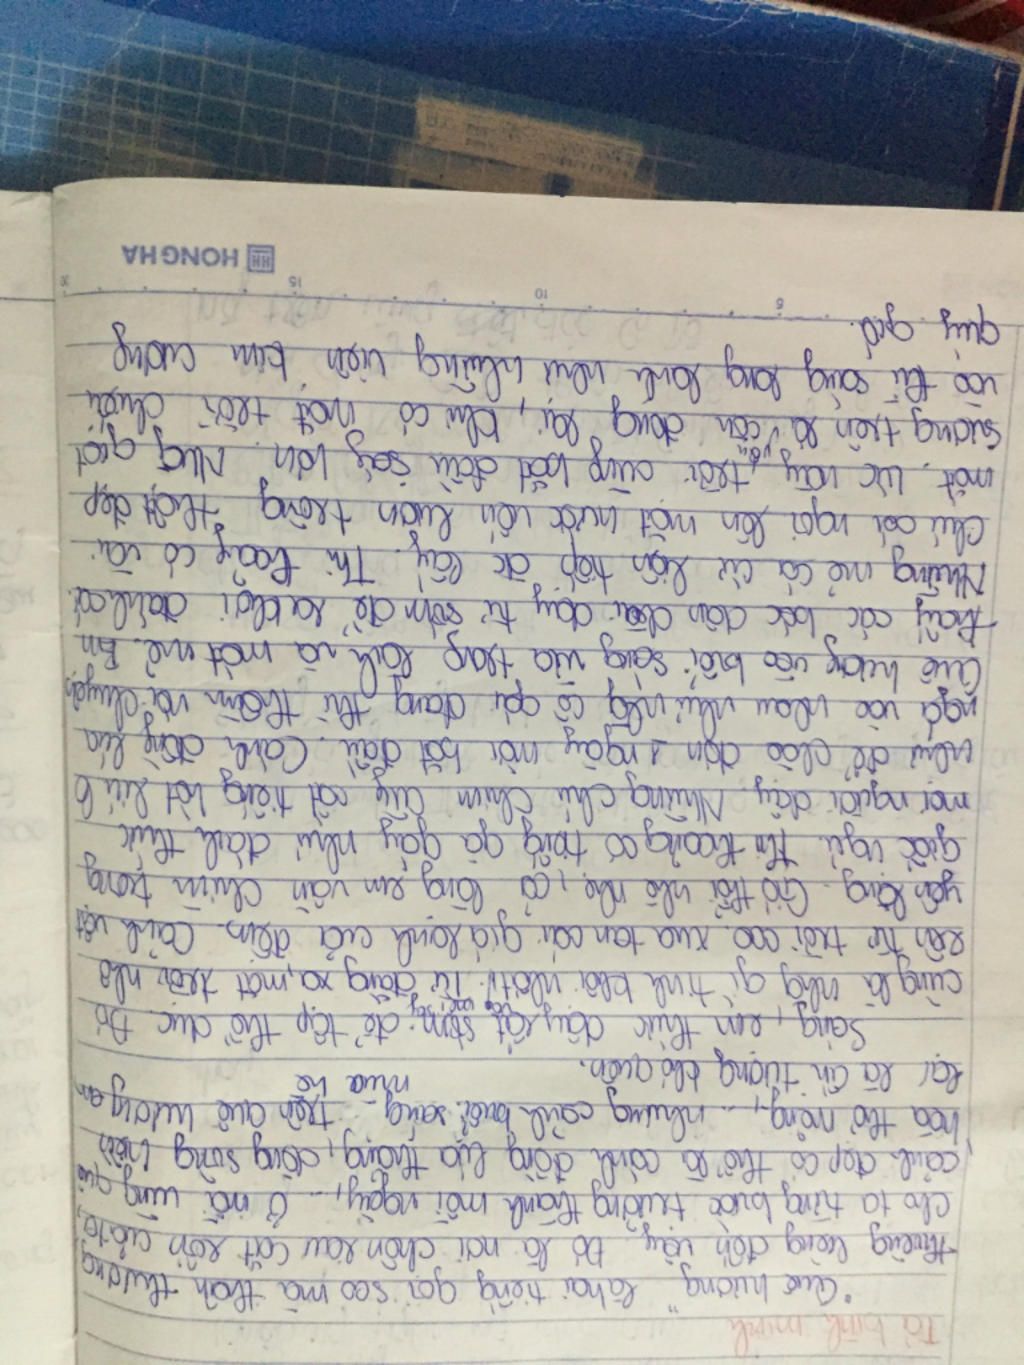 Tả bình minh
"Quê hương" là hai tiếng gọi sao mà thân thương
thiêng liêng đến vậy. Đó là nơi chôn rau cắt rốn của ta,
cho ta từng bước trưởng thành mỗi ngày,... Ở mỗi vùng quê,
cảnh đẹp có thể là cánh đồng lúa thẳng, dòng sông hiền
hòa thơ mộng,... nhưng cảnh buổi sáng mùa hè trên quê hương em
lại là ấn tượng khó quên.
Sáng, em thức dậy rất sớm để tập thể dục. Đó
cũng là những gì tinh khôi nhất. Từ đằng xa, mặt trời nhô
lên từ trời cao xua tan cái giá lạnh của đêm. Cảnh vật
yên lặng. Gió thổi nhè nhẹ, cả làng em vẫn chìm trong
giấc ngủ. Thi thoảng có tiếng gà gáy như đánh thức
mọi người dậy. Những chú chim cũng cất tiếng hót líu lo
như để chào đón 1 ngày mới bắt đầu. Cánh đồng lúa
ngả vào nhau như những cô gái đang thì thầm nói chuyện.
Quê hương vào buổi sáng vừa trong lành và mát mẻ. Em
thấy các bác dân chài dậy từ sớm để ra khơi đánh cá.
Những mẻ cá cứ liên tiếp đc lấy. Thi thoảng có vài
chú cá ngoi lên mặt nước uốn lượn trông thật đẹp
mắt. Lúc này, trời cũng bắt đầu sáng hơn. Những giọt
sương trên lá vẫn còn đọng lại, khi có mặt trời chiếu
vào thì sáng long lanh như những viên kim cương
quý giá.
5 10 15
HONG HA